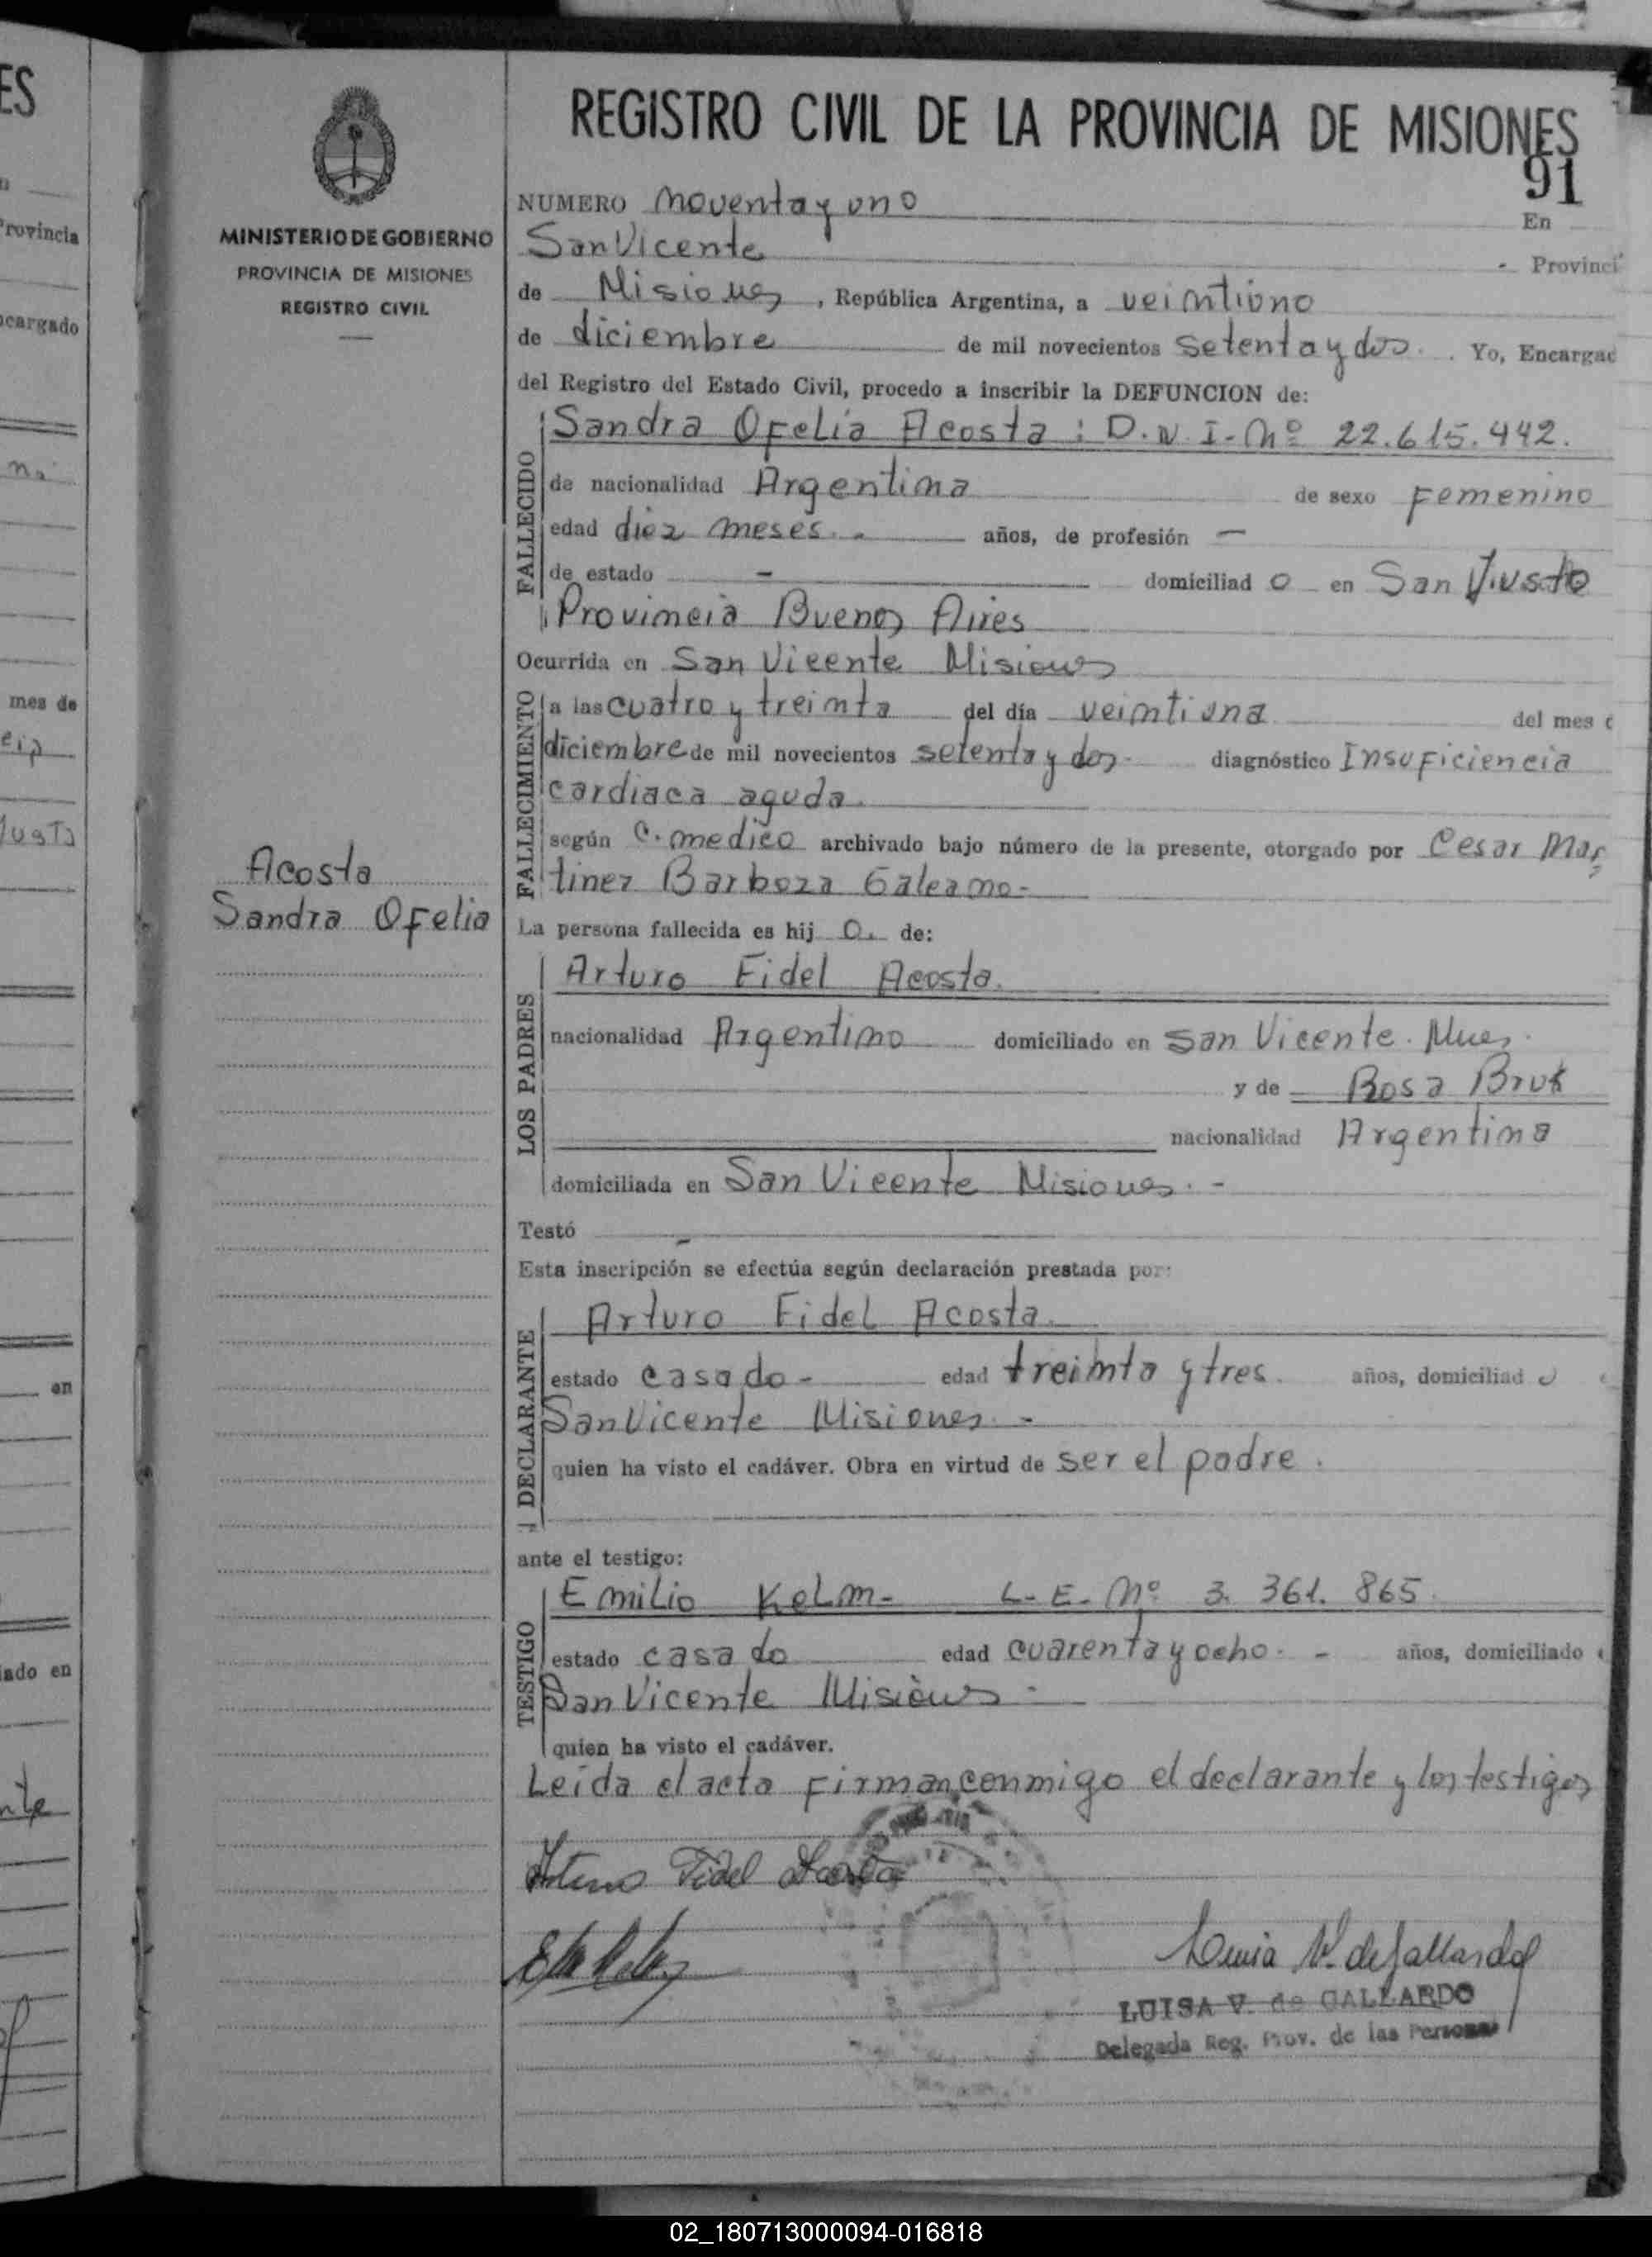 ES
REGISTRO CIVIL DE LA PROVINCIA DE MISIONES
91
MINISTERIO DE GOBIERNO
PROVINCIA DE MISIONES
REGISTRO CIVIL
NUMERO noventa y uno
En
San Vicente - Provinci
de Misiones, República Argentina, a veintiuno
de diciembre de mil novecientos setenta y dos. Yo, Encargad
del Registro del Estado Civil, procedo a inscribir la DEFUNCION de:
FALLECIDO
Sandra Ofelia Acosta : D.N.I. Nº 22.615.442.
de nacionalidad Argentina de sexo Femenino
edad diez meses. - años, de profesión —
de estado - domiciliad o en San Justo
Provincia Buenos Aires
Ocurrida en San Vicente Misiones
FALLECIMIENTO
a las cuatro y treinta del día veintiuna del mes d
diciembre de mil novecientos setenta y dos - diagnóstico Insuficiencia
cardiaca aguda.
según C. medico archivado bajo número de la presente, otorgado por Cesar Mar
tinez Barboza Galeano -
Acosta
Sandra Ofelia
La persona fallecida es hij o. de:
LOS PADRES
Arturo Fidel Acosta.
nacionalidad Argentino domiciliado en San Vicente. Mnes.
y de Rosa Bruk
nacionalidad Argentina
domiciliada en San Vicente Misiones. -
Testó -
Esta inscripción se efectúa según declaración prestada por:
DECLARANTE
Arturo Fidel Acosta
estado casado - edad treinta y tres. años, domiciliad o
San Vicente Misiones. -
quien ha visto el cadáver. Obra en virtud de ser el padre.
ante el testigo:
TESTIGO
Emilio Kelm - L.E. Nº 3. 361. 865.
estado casado edad cuarenta y ocho. - años, domiciliado
San Vicente Misiones -
quien ha visto el cadáver.
Leida el acta Firman conmigo el declarante y los testigos
Arturo Fidel Acosta
Luisa V. de Gallardo
LUISA V. de GALLARDO
Delegada Reg. Prov. de las Personas
Provincia
ncargado
mes de
en
iado en
02_180713000094-016818